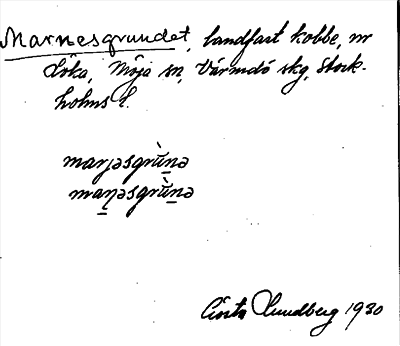 Marnesgrundet, landfast kobbe, nr
Löka, Möja sn, Värmdö skg, Stock-
holms l.
marɲəsgrùnə
maɳəsgrùnə
Gösta Lundberg 1930